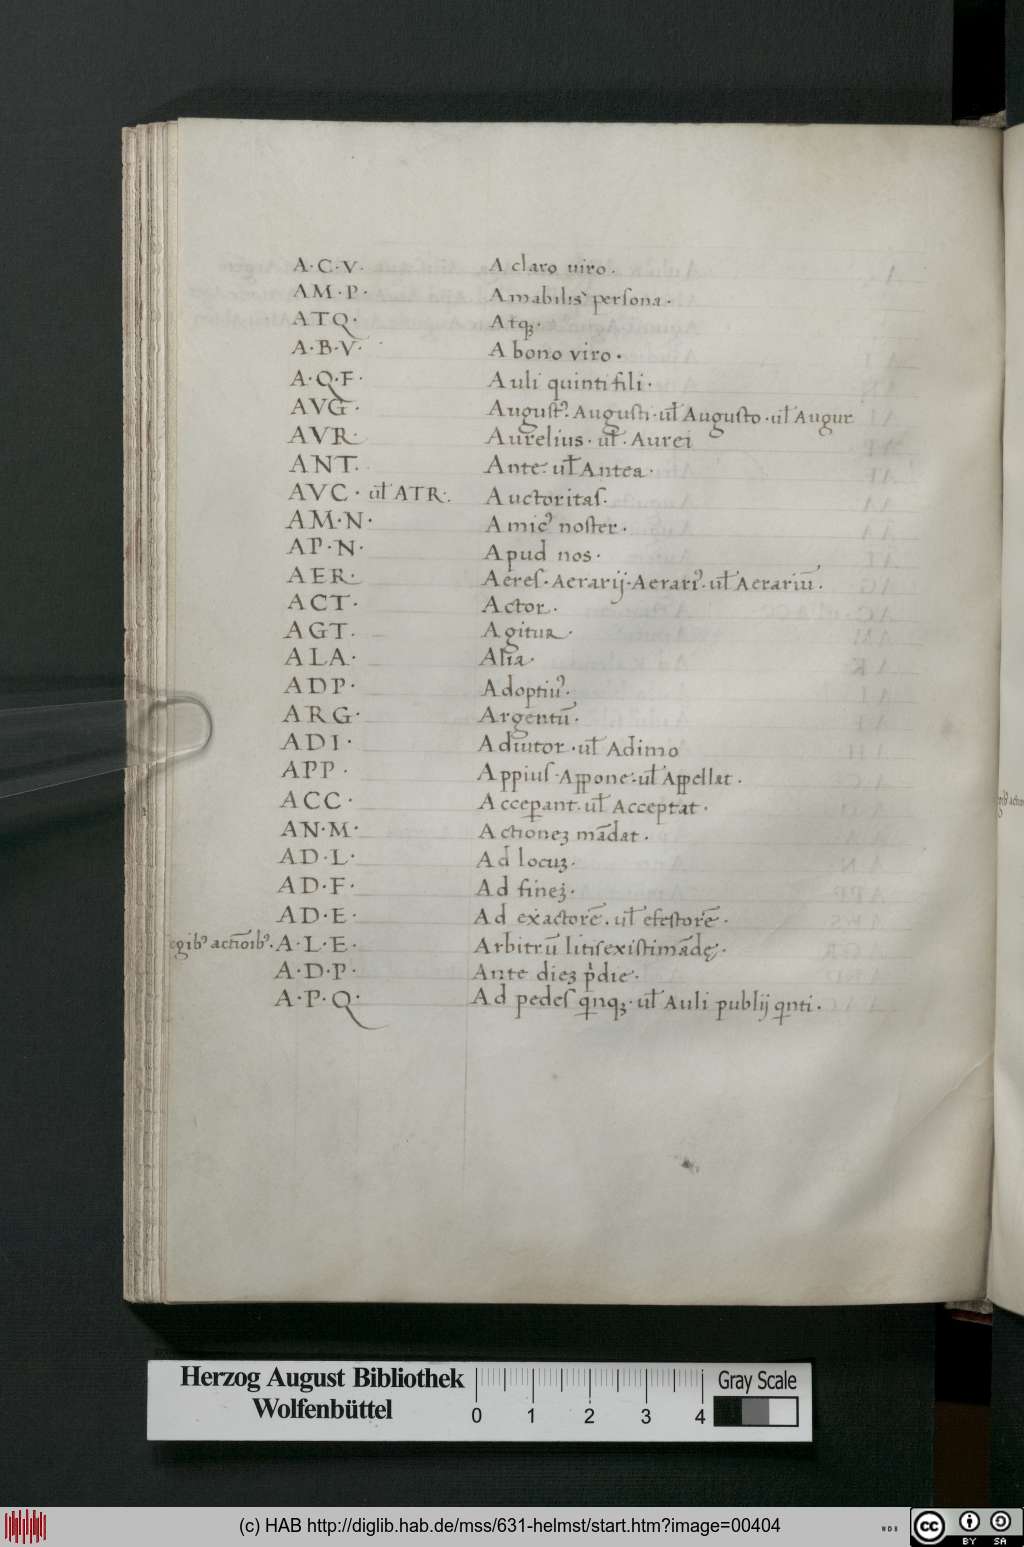 A·C·V· A claro uiro·
AM·P· Amabilis persona·
ATQ· Atqꝫ·
A·B·V· A bono viro·
A·Q·F· Auli quinti fili·
AVG· Augustꝰ· Augusti· ul̄ Augusto· ul̄ Augur
AVR· Aurelius· ul̄· Aurei
ANT· Ante· ul̄ Antea·
AVC· ul̄ ATR· Auctoritaſ·
AM·N· Amicꝰ noster·
AP·N· Apud nos·
AER· Aereſ· Aerarij· Aerariꝰ· ul̄ Aerariū·
ACT· Actor·
AGT· Agitur·
ALA· Alia·
ADP· Adoptiuꝰ·
ARG· Argentū·
ADI· Adiutor· ul̄ Adimo
APP· Appiuſ· Appone· ul̄ Appellat·
ACC· Acceꝑant· ul̄ Acceptat·
AN·M· Actioneꝫ mādat·
AD·L· Ad locuꝫ·
AD·F· Ad fineꝫ·
AD·E· Ad exactorē· ul̄ efestorē·
egibꝰ actiōibꝰ· A·L·E· Arbitrū litiſ existimādę·
A·D·P· Ante dieꝫ pͥdie·
A·P·Q· Ad pedeſ qͥnqꝫ· ul̄ Auli publij qͥnti·
Herzog August Bibliothek
Wolfenbüttel
0 1 2 3 4
Gray Scale
(c) HAB http://diglib.hab.de/mss/631-helmst/start.htm?image=00404
WDB
cc BY SA